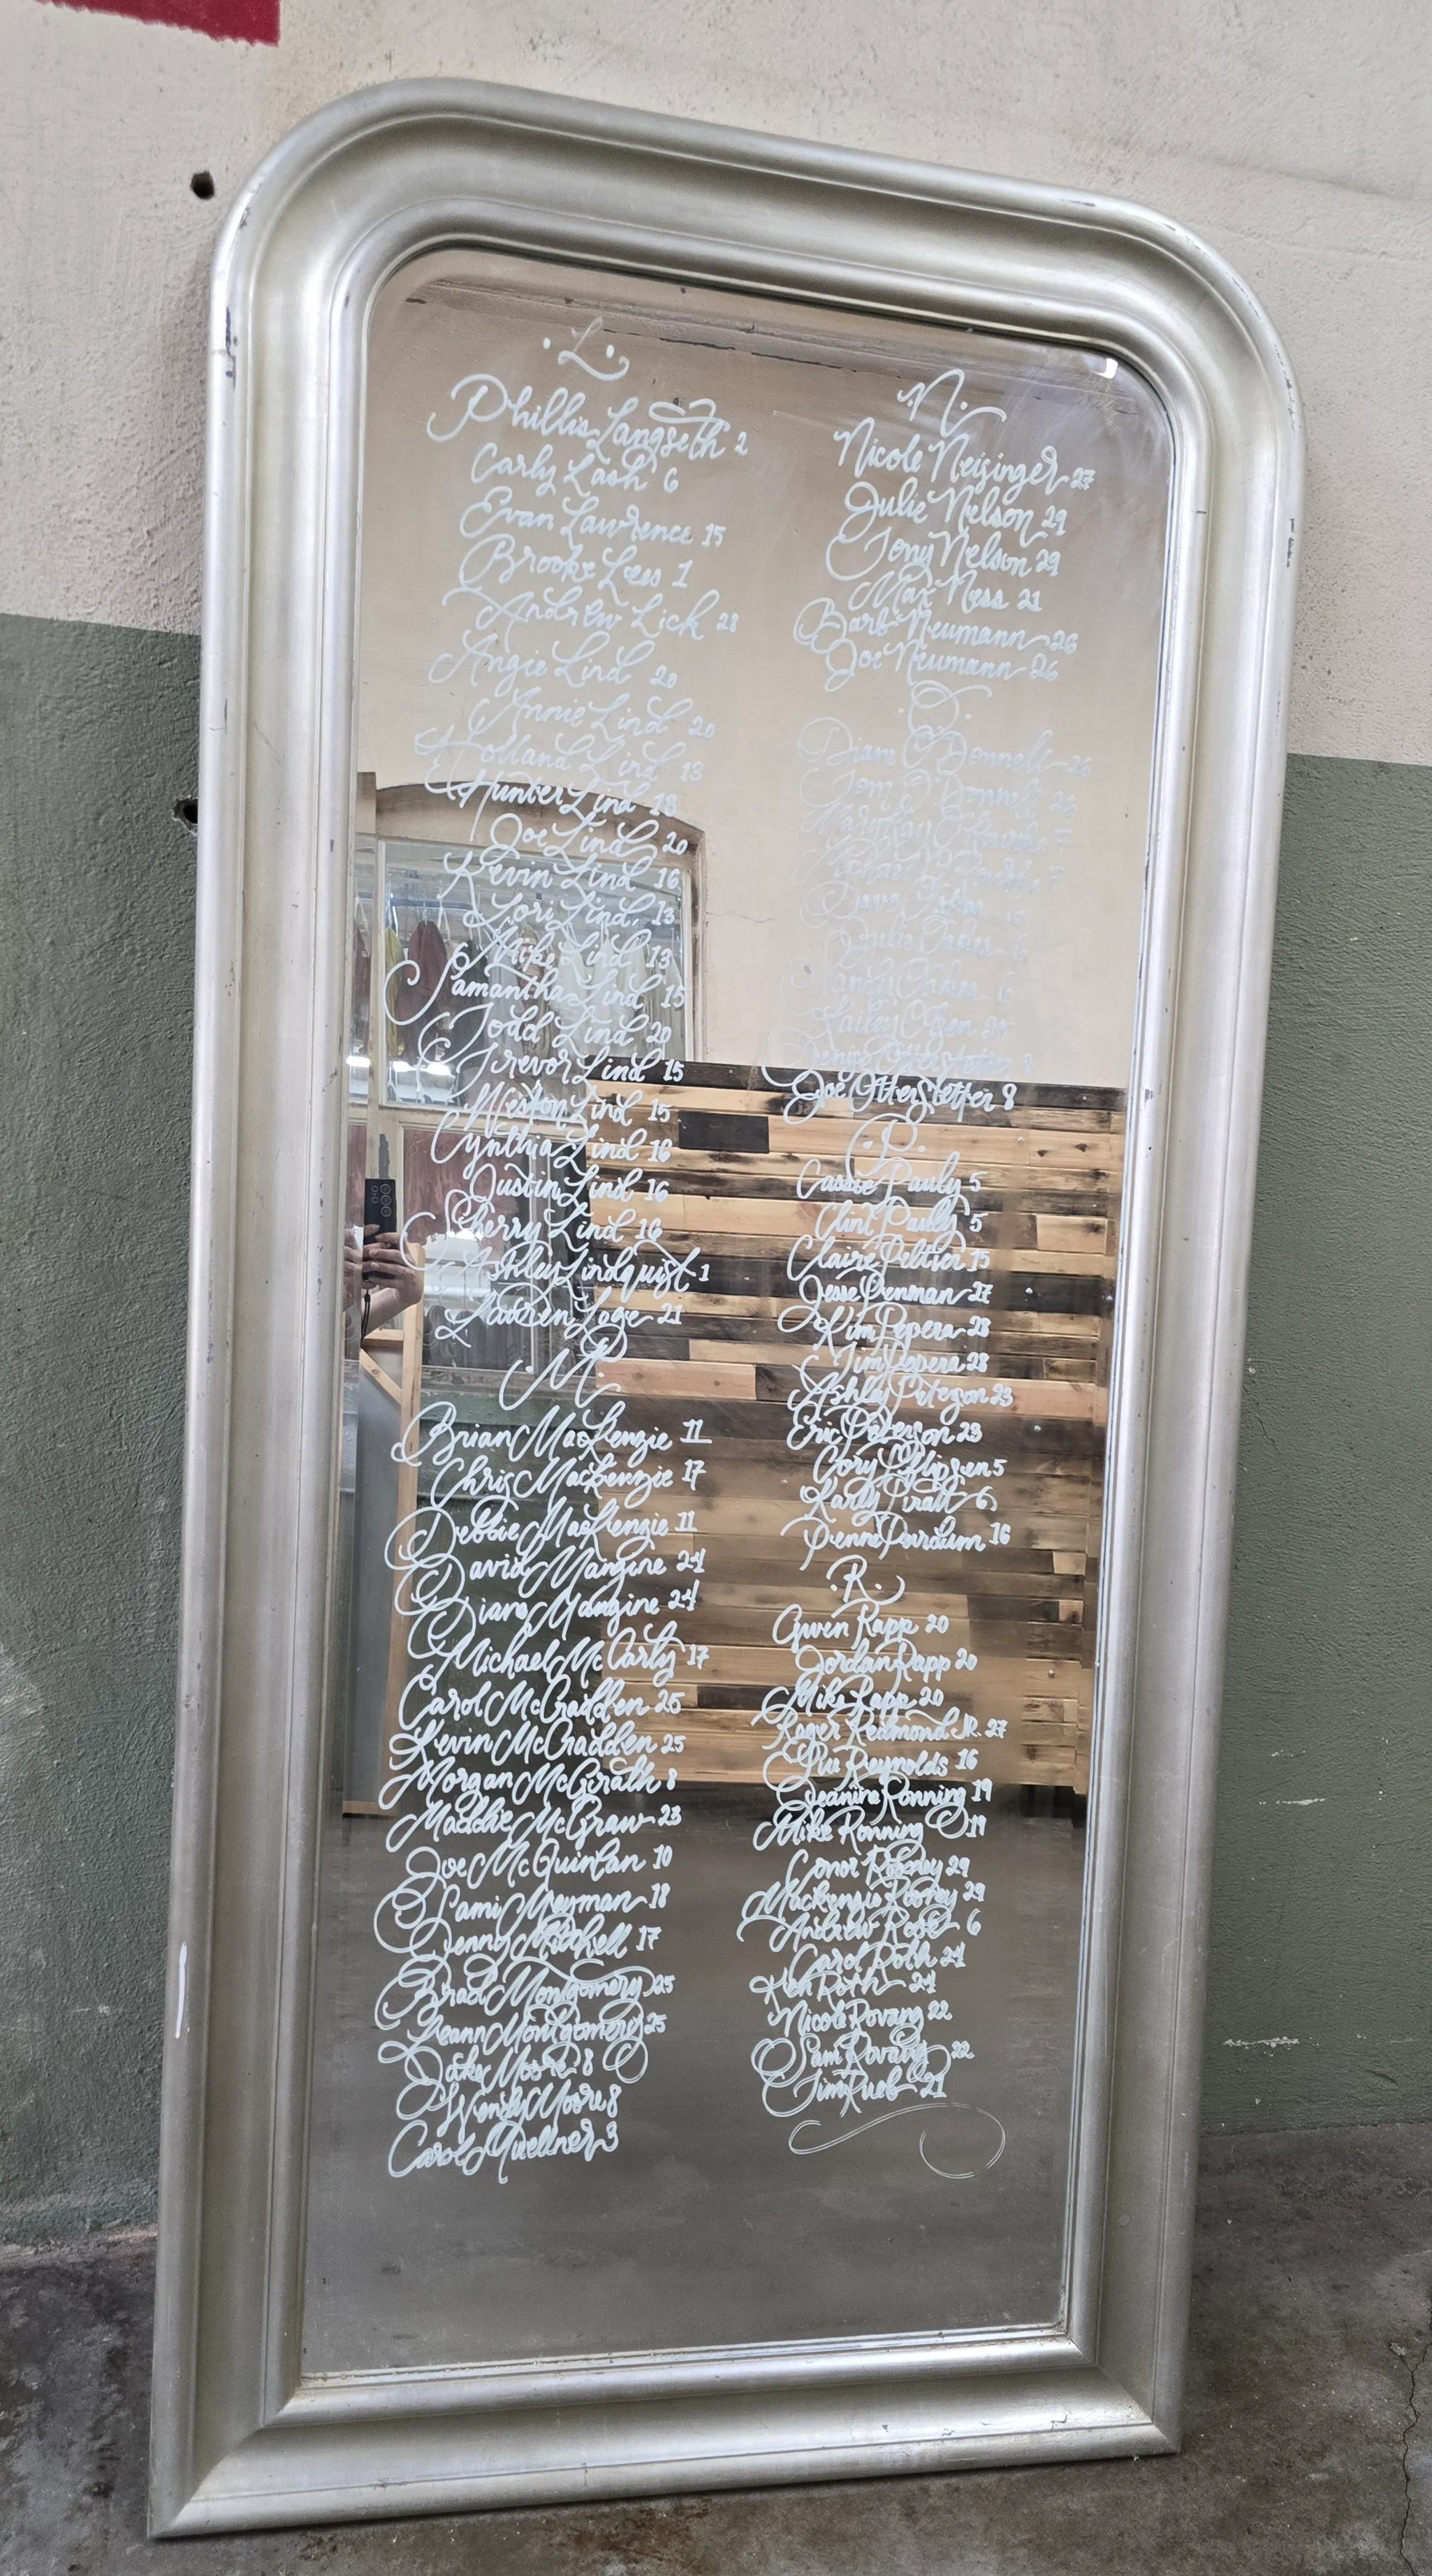 L.
Phillis Langseth 2
Carly Lash 6
Evan Lawrence 15
Brooke Lees 1
Andrew Lick 28
Angie Lind 20
Annie Lind 20
Holland Lind 13
Hunter Lind 13
Joe Lind 20
Kevin Lind 16
Lori Lind 13
Mike Lind 13
Samantha Lind 15
Todd Lind 20
Trevor Lind 15
Weston Lind 15
Cynthia Lind 16
Justin Lind 16
Sherry Lind 16
Ashley Lindquist 1
Lauren Loge 21
M.
Brian MacKenzie 11
Chris MacKenzie 17
Debbie MacKenzie 11
David Mangine 24
Diane Mangine 24
Michael McCarty 17
Carol McCradden 25
Kevin McCradden 25
Morgan McGrath 8
Maddie McGraw 23
Joe McQuinlan 10
Sami Meyman 18
Jenny Mitchell 17
Brad Montgomery 25
Leann Montgomery 25
Jake Moore 8
Wendy Moore 8
Carol Muellner 3
N.
Nicole Neisinger 27
Julie Nelson 29
Tony Nelson 29
Max Ness 21
Barb Neumann 26
Joe Neumann 26
O.
Diane O'Donnell 26
Tom O'Donnell 26
Michael O'Rourke 7
Dave
Julie
Hailey Olsen
Otterstetter 8
Joe Otterstetter 8
P.
Cassie Pauly 5
Clint Pauly 5
Claire Peltier 15
Jesse Penman 27
Kim Pepera 28
Jim Pepera 28
Ashley Peterson 23
Eric Peterson 23
Cory Philipsen 5
Karly Piratt 6
Penne Purdum 16
R.
Gwen Rapp 20
Jordan Rapp 20
Mike Rapp 20
Roger Redmond JR. 27
Stu Reynolds 16
Jeanine Ronning 19
Mike Ronning 19
Conor Rooney 29
Mackenzie Rooney 29
Andrew Rose 6
Carol Roth 24
Ken Roth 24
Nicole Rovang 22
Sam Rovang 22
Jim Rueb 21